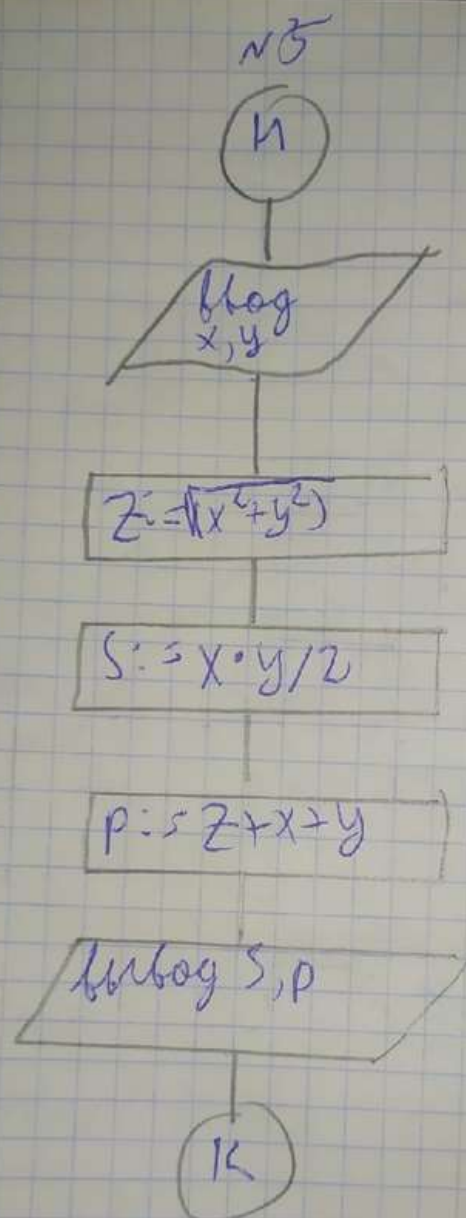 №5
Н
ввод
x, y
Z:=√(x²+y²)
S:=x·y/2
p:=Z+x+y
вывод S, p
К